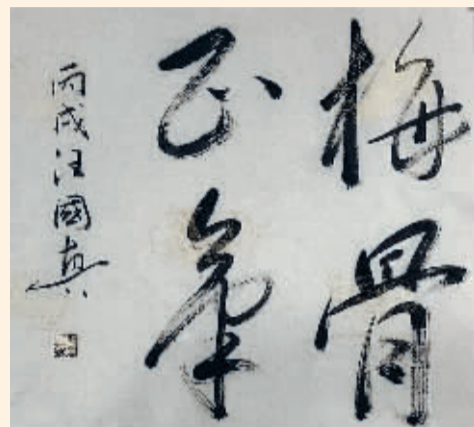 梅骨
正氣
丙戌汪國真